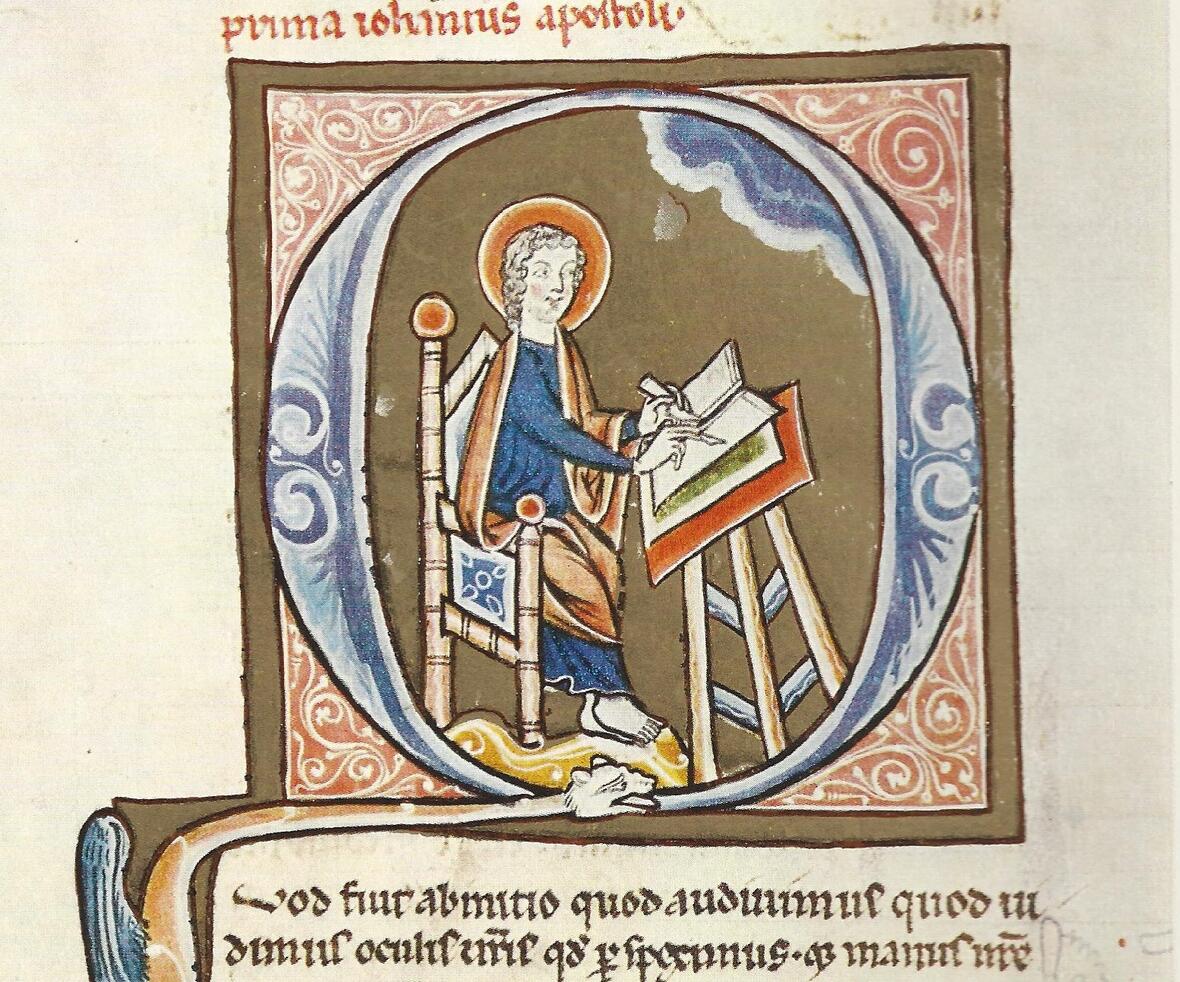 prima iohannis apostoli.
Quod fuit ab initio quod audiuimus quod ui
dimus oculis nr̄is qd̄ ꝑspeximus· ⁊ manus nr̄e